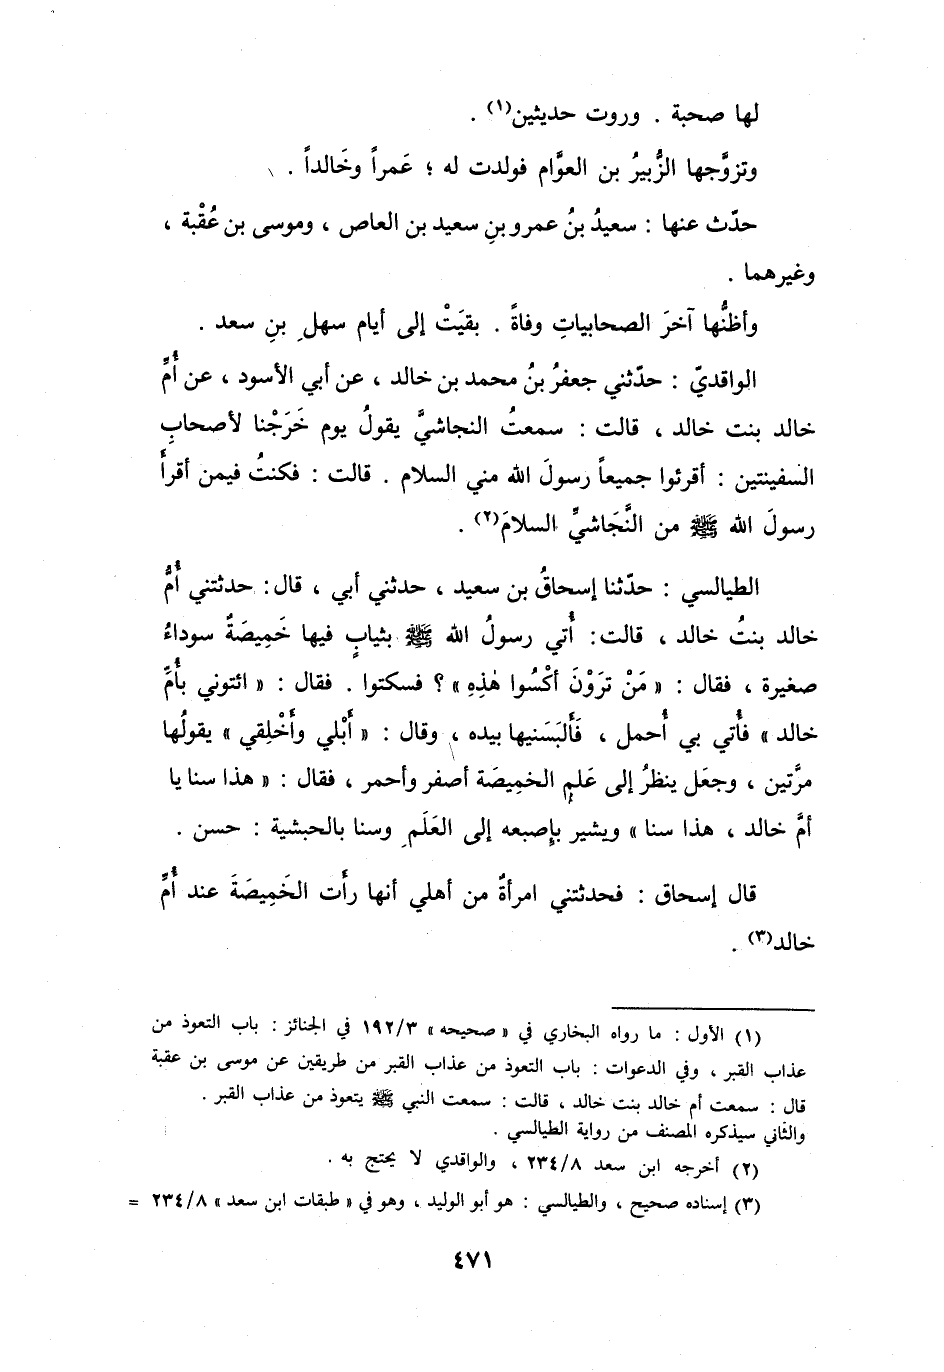 لها صحبة . وروت حديثين(١) .
وتزوَّجها الزُّبيرُ بن العوَّام فولدت له ؛ عَمراً وخَالداً .
حدّث عنها : سعيدُ بنُ عمرو بنِ سعيد بن العاص ، وموسى بن عُقْبة ،
وغيرهما .
وأظنُّها آخرَ الصحابياتِ وفاةً . بقيَتْ إلى أيام سهلِ بنِ سعد .
الواقديّ : حدّثني جعفرُ بنُ محمد بن خالد ، عن أبي الأسود ، عن أُمِّ
خالد بنت خالد ، قالت : سمعتُ النجاشيَّ يقولُ يوم خَرَجْنا لأصحابِ
السفينتين : أقرئوا جميعاً رسولَ الله مني السلام . قالت : فكنتُ فيمن أقرأَ
رسولَ الله ﷺ من النَّجَاشيِّ السلامَ(٢) .
الطيالسي : حدّثنا إسحاقُ بن سعيد ، حدثني أبي ، قال : حدثتني أُمُّ
خالد بنتُ خالد ، قالت : أُتي رسولُ الله ﷺ بثيابٍ فيها خَمِيصَةٌ سوداءُ
صغيرة ، فقال : « مَنْ تَرَوْنَ أكْسُوا هٰذِهِ » ؟ فسكتوا . فقال : « ائتوني بأُمِّ
خالد » فأُتي بي أُحمل ، فَأَلبَسَنيها بيده ، وقال : « أَبْلي وأَخْلِقي » يقولُها
مرَّتين ، وجعَل ينظرُ إلى عَلمِ الخمِيصَة أصفر وأحمر ، فقال : « هذا سنا يا
أمَّ خالد ، هذا سنا » ويشير بإِصبعه إلى العَلَمِ وسنا بالحبشية : حسن .
قال إسحاق : فحدثتني امرأةٌ من أهلي أنها رأَت الخَمِيصَةَ عند أُمِّ
خالد(٣) .
(١) الأول : ما رواه البخاري في « صحيحه » ١٩٢/٣ في الجنائز : باب التعوذ من
عذاب القبر ، وفي الدعوات : باب التعوذ من عذاب القبر من طريقين عن موسى بن عقبة
قال : سمعت أم خالد بنت خالد ، قالت : سمعت النبي ﷺ يتعوذ من عذاب القبر .
والثاني سيذكره المصنف من رواية الطيالسي .
(٢) أخرجه ابن سعد ٢٣٤/٨ ، والواقدي لا يحتج به .
(٣) إسناده صحيح ، والطيالسي : هو أبو الوليد ، وهو في « طبقات ابن سعد » ٢٣٤/٨ =
٤٧١